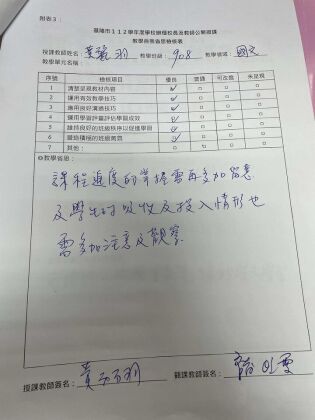 附表3
基隆市112學年度學校辦理校長及教師公開授課
教學自我省思檢核表
授課教師姓名： 教學班級：908 教學領域：國文
教學單元名稱：
序號 檢核項目 優良 普通 可改進 未呈現
1 清楚呈現教材內容 ✓ □ □ □
2 運用有效教學技巧 ✓ □ □ □
3 應用良好溝通技巧 ✓ □ □ □
4 運用學習評量評估學習成效 ✓ □ □ □
5 維持良好的班級秩序以促進學習 ✓ □ □ □
6 營造積極的班級氣氛 ✓ □ □ □
7 其他： □ □ □ □
◎教學省思：
課程進度的掌握需再多加留意
及學生的吸收及投入情形也
需多加注意及觀察
授課教師簽名： 觀課教師簽名：